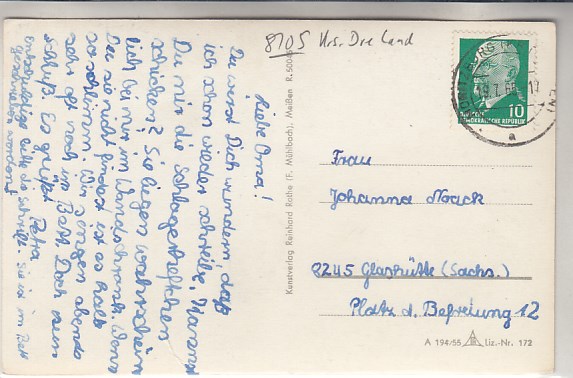 Liebe Oma!
Du wirst Dich wundern, daß
ich schon wieder schreibe. Kannst
Du mir die Schlagertextchen
schicken? Sie liegen wahrschein
lich bei mir im Wandschrank. Wenn
Du sie nicht findest ist es halb
so schlimm. Wir singen abends
sehr oft noch im Bett. Doch nun
Schluß! Es grüßt Petra
entschuldige bitte die Schrift! Sie ist im Bett
geschrieben worden!
8705 Krs. Dre Land
10
DEUTSCHE
DEMOKRATISCHE REPUBLIK
a
Frau
Johanna Noack
8245 Glashütte (Sachs.)
Platz d. Befreiung 12
Kunstverlag Reinhard Rothe (F. Mühlbach), Meißen
A 194/55 Liz.-Nr. 172